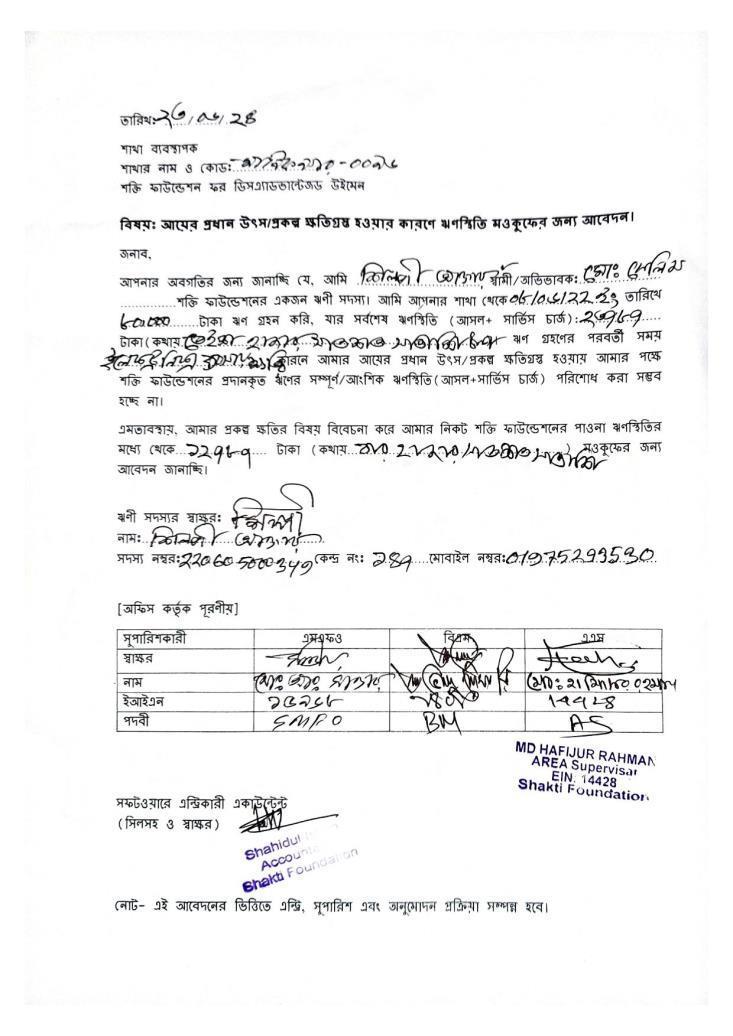 তারিখঃ ২৩/০৬/২৪
শাখা ব্যবস্থাপক
শাখার নাম ও কোডঃ
শক্তি ফাউন্ডেশন ফর ডিসএ্যাডভান্টেজড উইমেন
বিষয়ঃ আয়ের প্রধান উৎস/প্রকল্প ক্ষতিগ্রস্থ হওয়ার কারণে ঋণস্থিতি মওকুফের জন্য আবেদন।
জনাব,
আপনার অবগতির জন্য জানাচ্ছি যে, আমি শিল্পী আক্তার স্বামী/অভিভাবক: মোঃ সেলিম
শক্তি ফাউন্ডেশনের একজন ঋণী সদস্য। আমি আপনার শাখা থেকে ০৮/০৬/২২ ইং তারিখে
৮০,০০০ টাকা ঋণ গ্রহন করি, যার সর্বশেষ ঋণস্থিতি (আসল+ সার্ভিস চার্জ):
টাকা (কথায় হাজার সাতশত সাতাশি টাকা ঋণ গ্রহণের পরবর্তী সময়
কারনে আমার আয়ের প্রধান উৎস/প্রকল্প ক্ষতিগ্রস্থ হওয়ায় আমার পক্ষে
শক্তি ফাউন্ডেশনের প্রদানকৃত ঋণের সম্পূর্ণ/আংশিক ঋণস্থিতি (আসল+সার্ভিস চার্জ) পরিশোধ করা সম্ভব
হচ্ছে না।
এমতাবস্থায়, আমার প্রকল্প ক্ষতির বিষয় বিবেচনা করে আমার নিকট শক্তি ফাউন্ডেশনের পাওনা ঋণস্থিতির
মধ্যে থেকে ১২৭৮৭ টাকা (কথায় বার হাজার সাতশত সাতাশি) মওকুফের জন্য
আবেদন জানাচ্ছি।
ঋণী সদস্যর স্বাক্ষরঃ শিল্পী
নামঃ শিল্পী আক্তার
সদস্য নম্বরঃ কেন্দ্র নং: মোবাইল নম্বরঃ 01975299530
[অফিস কর্তৃক পূরণীয়]
সুপারিশকারী এমএফও বিএম এএস
স্বাক্ষর
নাম মোঃ হাফিজুর রহমান
ইআইএন ১৪৪২৪
পদবী SMFO BM AS
MD HAFIJUR RAHMAN
AREA Supervisar
EIN. 14428
Shakti Foundation
সফটওয়ারে এন্ট্রিকারী একাউন্টেন্ট
(সিলসহ ও স্বাক্ষর)
Shahidul
Account
Shakti Foundation
নোট- এই আবেদনের ভিত্তিতে এন্ট্রি, সুপারিশ এবং অনুমোদন প্রক্রিয়া সম্পন্ন হবে।